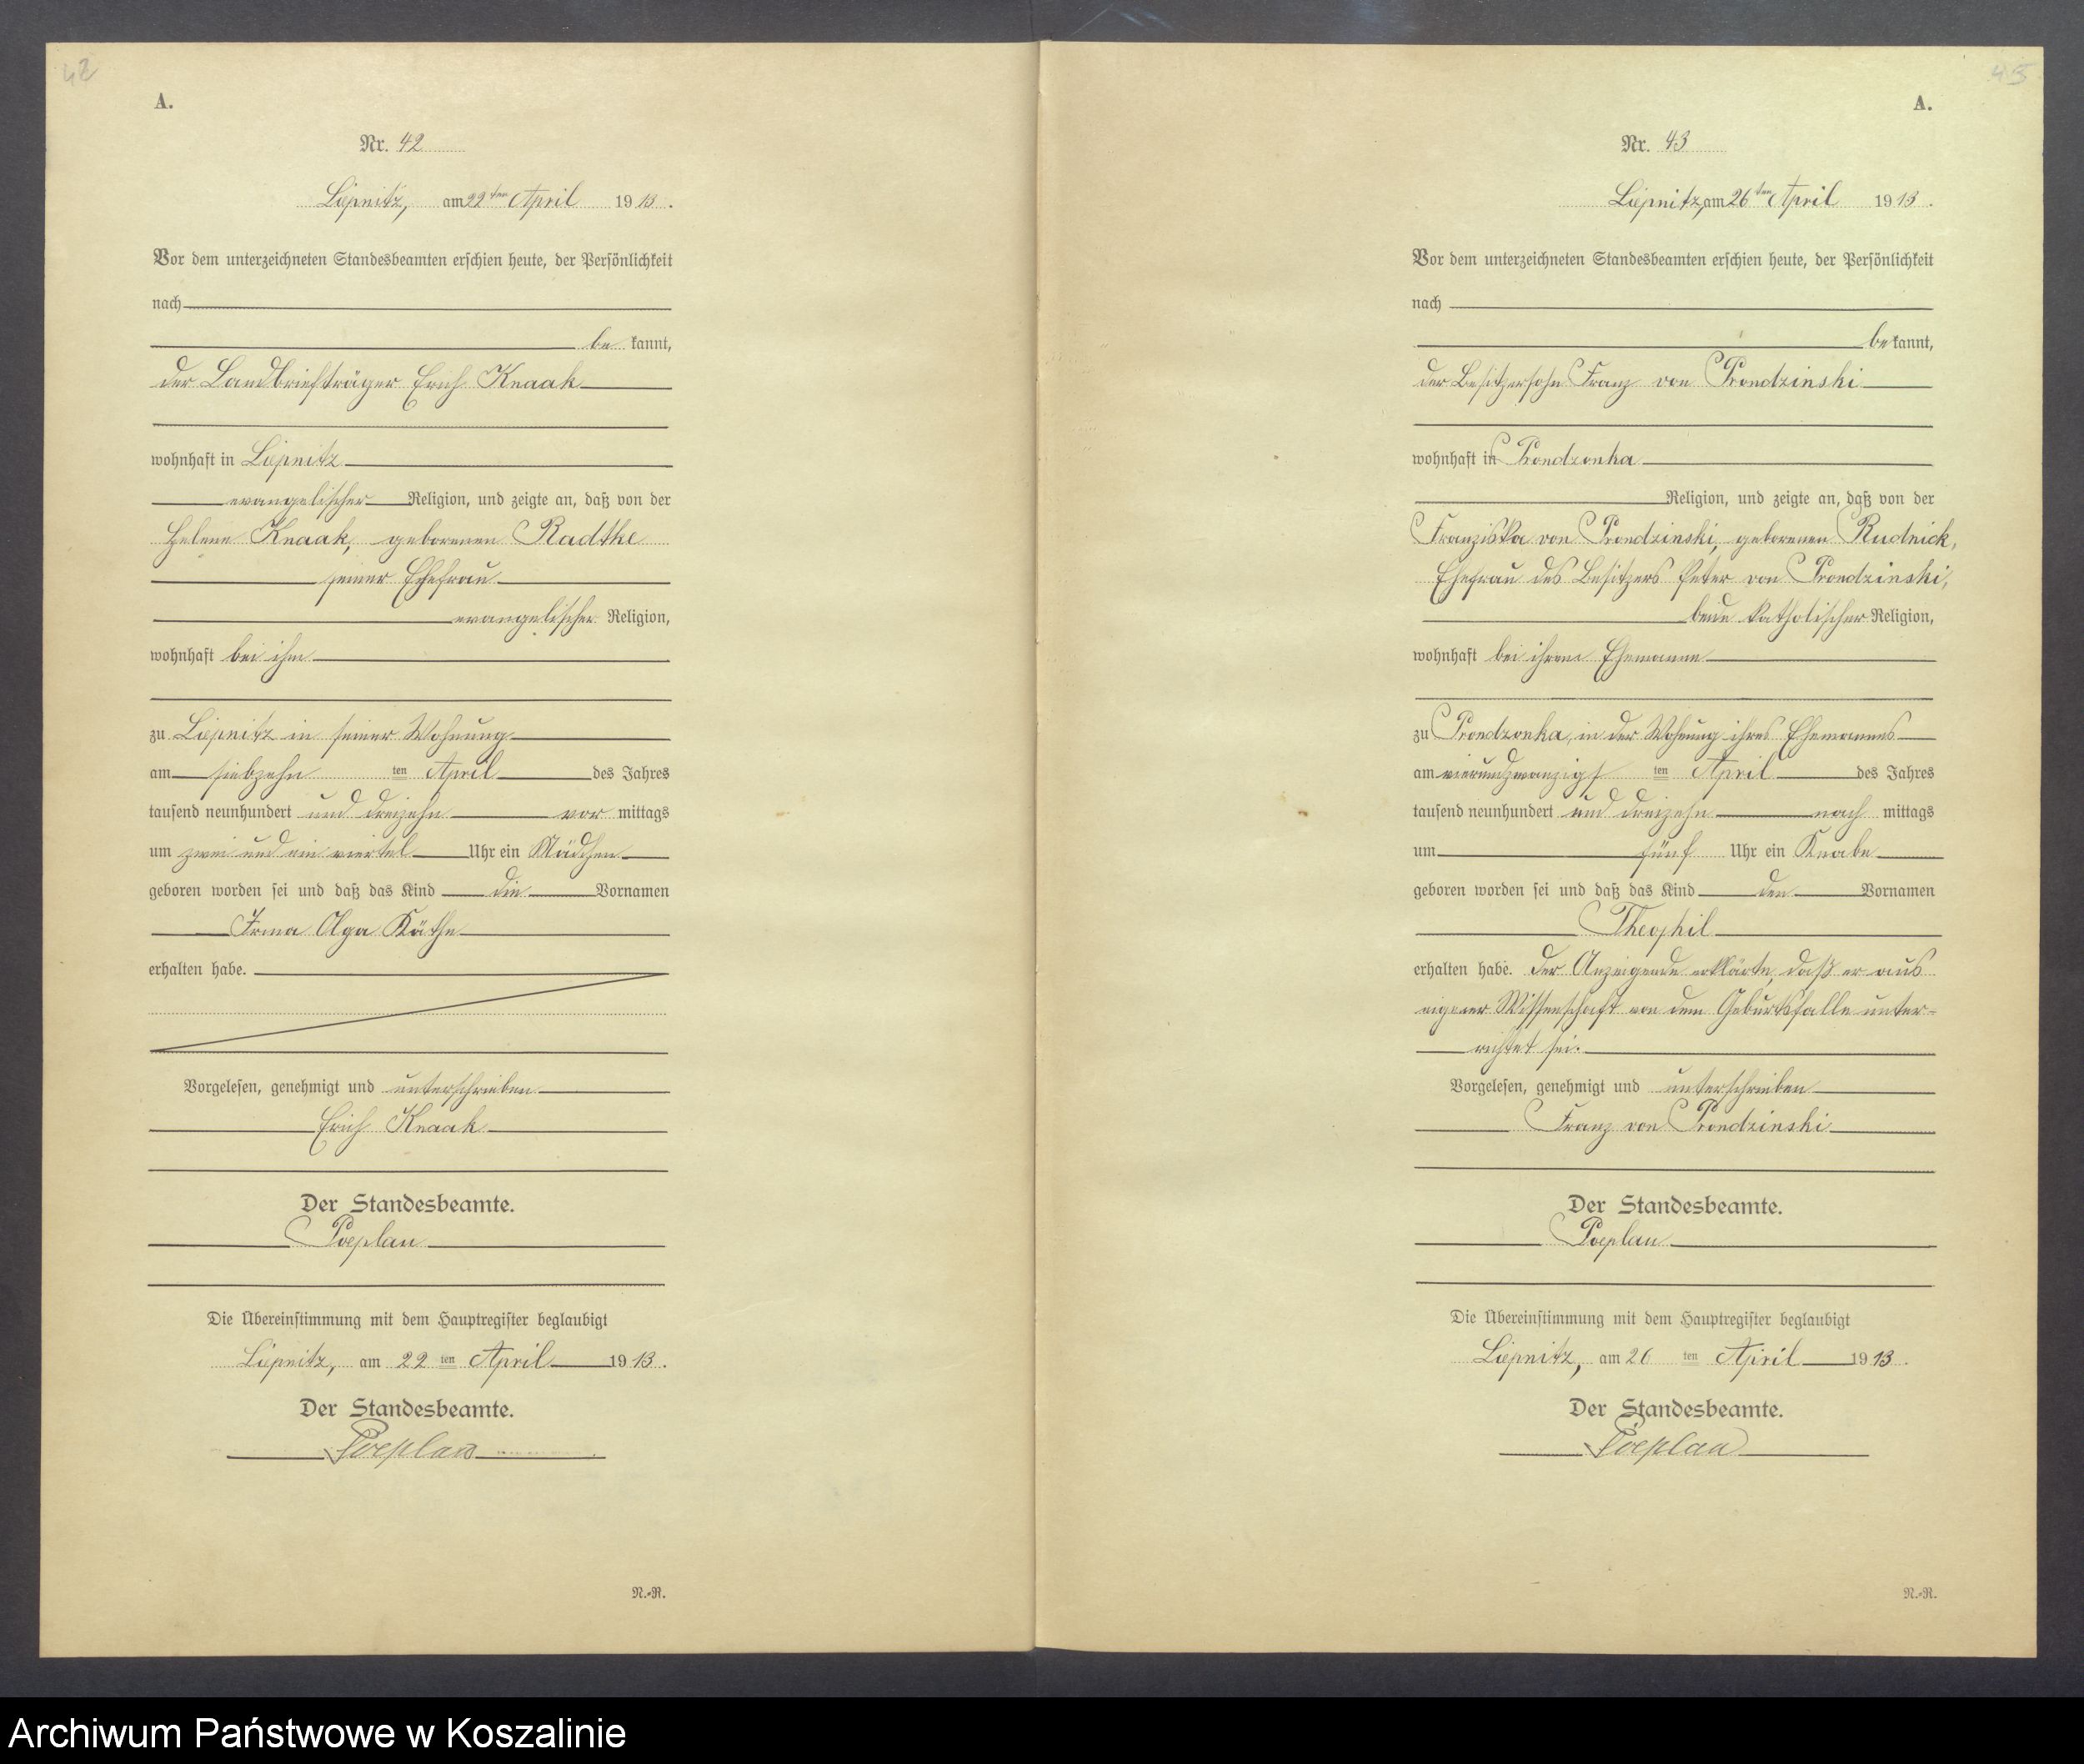 42
A.
Nr. 42
Liepnitz, am 22ten April 1913.
Vor dem unterzeichneten Standesbeamten erschien heute, der Persönlichkeit
nach
be kannt,
der Landbriefträger Erich Knaak
wohnhaft in Liepnitz
evangelischer Religion, und zeigte an, daß von der
Helene Knaak, geborenen Radtke
seiner Ehefrau
evangelischer Religion,
wohnhaft bei ihm
zu Liepnitz in seiner Wohnung
am siebzehn ten April des Jahres
tausend neunhundert und dreizehn vor mittags
um zwei und ein viertel Uhr ein Mädchen
geboren worden sei und daß das Kind die Vornamen
Irma Olga Käthe
erhalten habe.
Vorgelesen, genehmigt und unterschrieben
Erich Knaak
Der Standesbeamte.
Poeplau
Die Übereinstimmung mit dem Hauptregister beglaubigt
Liepnitz, am 22 ten April 1913.
Der Standesbeamte.
Poeplau
N.-R.
A.
Nr. 43
Liepnitz, am 26ten April 1913.
Vor dem unterzeichneten Standesbeamten erschien heute, der Persönlichkeit
nach
be kannt,
der Besitzersohn Franz von Prondzinski
wohnhaft in Prondzonka
Religion, und zeigte an, daß von der
Franziska von Prondzinski, geborenen Rudnick,
Ehefrau des Besitzers Peter von Prondzinski,
beide katholischer Religion,
wohnhaft bei ihrem Ehemanne
zu Prondzonka, in der Wohnung ihres Ehemannes
am vierundzwanzigs ten April des Jahres
tausend neunhundert und dreizehn nach mittags
um fünf Uhr ein Knabe
geboren worden sei und daß das Kind den Vornamen
Theophil
erhalten habe. Der Anzeigende erklärte, daß er aus
eigener Wissenschaft von dem Geburtsfalle unter-
richtet sei.
Vorgelesen, genehmigt und unterschrieben
Franz von Prondzinski
Der Standesbeamte.
Poeplau
Die Übereinstimmung mit dem Hauptregister beglaubigt
Liepnitz, am 26 ten April 1913.
Der Standesbeamte.
Poeplau
N.-R.
Archiwum Państwowe w Koszalinie